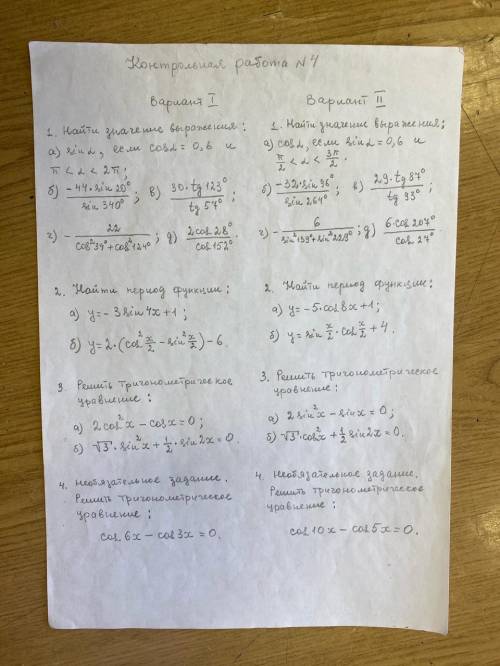 Контрольная работа №4
Вариант I
1. Найти значение выражения:
а) sinα, если cosα = 0,6 и
π < α < 2π;
б) -44·sin 20° / sin 340°; в) 30·tg 123° / tg 57°;
г) - 22 / cos²34°+cos²124°; д) 2cos 28° / cos 152°.
2. Найти период функции:
а) y = -3 sin 4x + 1;
б) y = 2·(cos² x/2 - sin² x/2) - 6.
3. Решить тригонометрическое
уравнение:
а) 2cos²x - cosx = 0;
б) √3·sin²x + 1/2·sin 2x = 0.
4. Необязательное задание.
Решить тригонометрическое
уравнение:
cos 6x - cos 3x = 0.
Вариант II
1. Найти значение выражения;
а) cosα, если sinα = 0,6 и
π/2 < α < 3π/2.
б) -32·sin 96° / sin 264°; в) 29·tg 87° / tg 93°;
г) - 6 / sin²139°+sin²229°; д) 6·cos 207° / cos 27°
2. Найти период функции:
а) y = -5·cos 8x + 1;
б) y = sin x/2 · cos x/2 + 4.
3. Решить тригонометрическое
уравнение:
а) 2 sin²x - sinx = 0;
б) √3·cos²x + 1/2 sin 2x = 0.
4. Необязательное задание.
Решить тригонометрическое
уравнение:
cos 10x - cos 5x = 0.